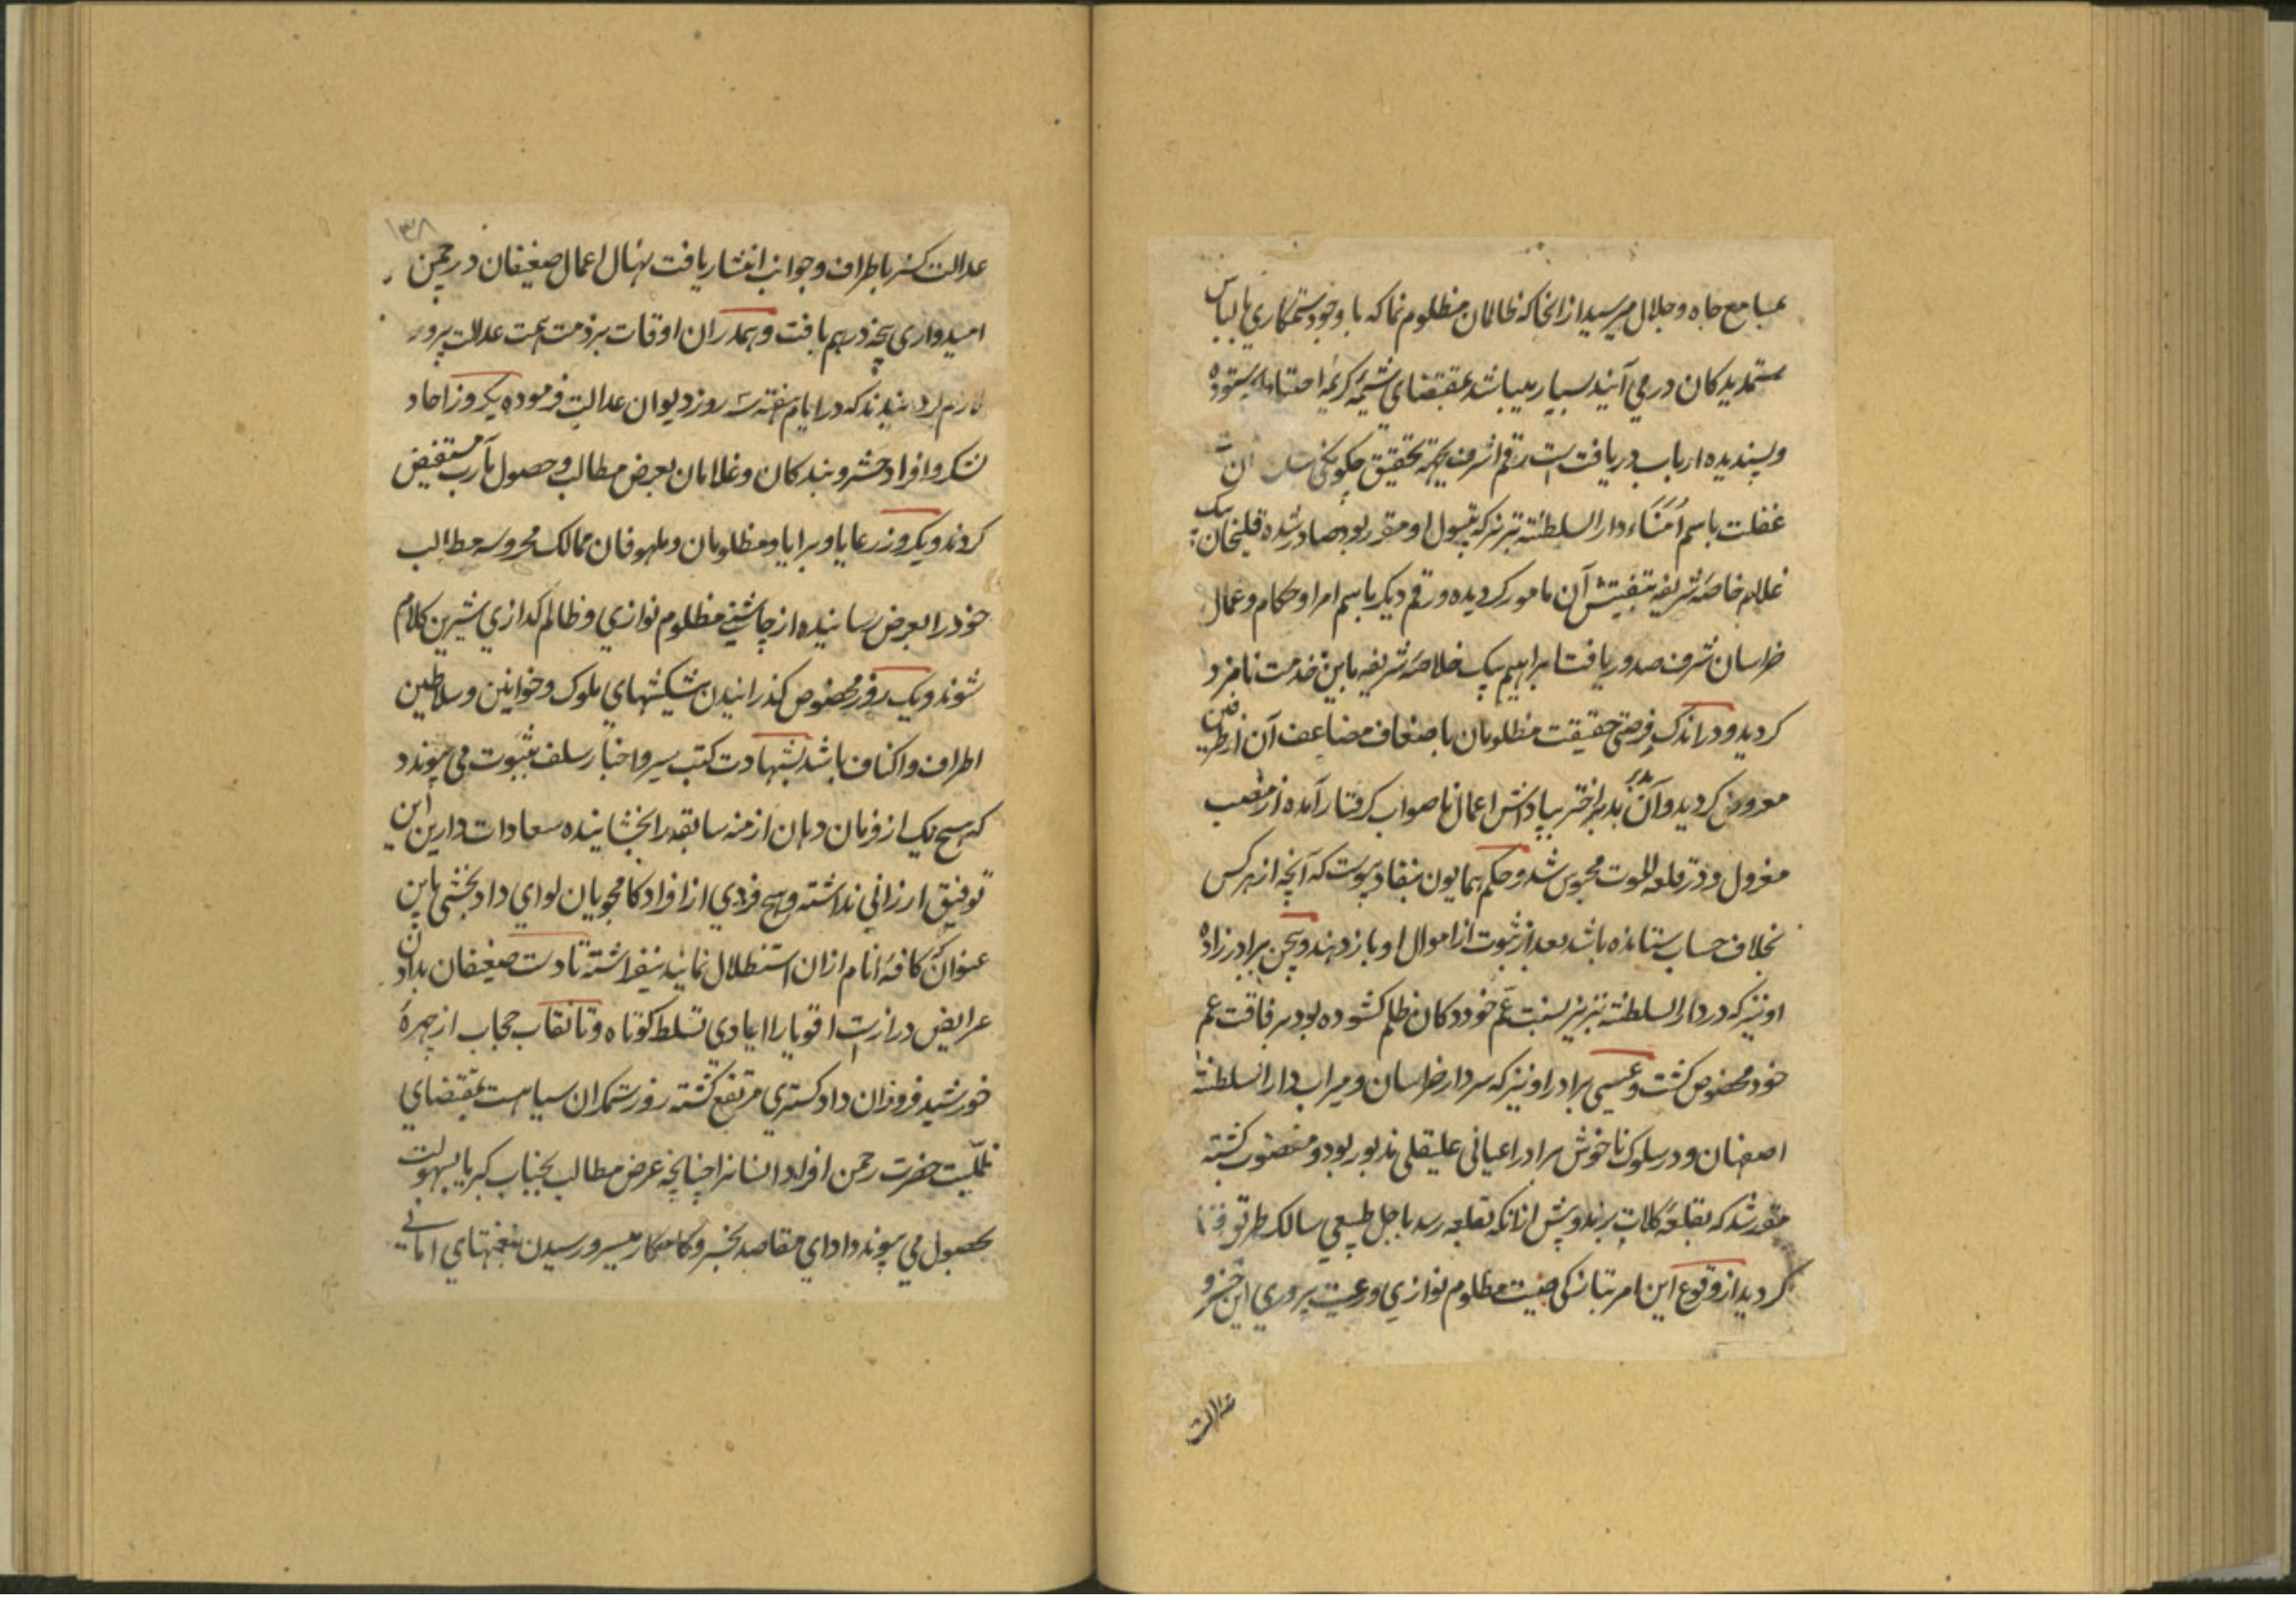 بمسامع جاه و جلال میرسید از انجا که ظالمان مظلوم نما که با وجود ستمکاری با لباس
ستمدیدکان در می آیند بسیار میباشد بمقتضای شیمه کریمه احتیاط ستوده
و پسندیده ارباب دریافت است رقم اشرف بجهة تحقیق چکونکی
غفلت باسم اُمَنَاء دار السلطنه تبریز که بتیول او مقرر بود صادر شده قلیخان بیک
غلام خاصه شریفه بتفتیش آن مامور کردیده و رقم دیکر باسم امرا و حکام و عمال
خراسان شرف صدور یافت ابراهیم بیک غلام خاصه شریفه باین خدمت نامزد
کردید و در اندک فرصتی حقیقت مظلومان باضعاف مضاعف آن از طرفین
معروض کردید و آن بد اختر بپاداش اعمال ناصواب کرفتار آمده از منصب
معزول و در قلعه الموت محبوس شد و حکم همایون بنفاذ پیوست که آنچه از هر کس
بخلاف حساب ستانده باشد بعد از ثبوت از اموال او باز دهند و همچنین برادرزاده
او نیز که در دار السلطنه تبریز بسنت عم خود دکان ظلم کشوده بود برفاقت عم
خود مخصوص کشت و عیسی برادر او نیز که سردار خراسان و میراب دار السلطنه
اصفهان و در سلوک ناخوش برادر اعیانی علیقلی مذبور بود و مغضوب کشته
مقرر شد که بقلعه کلات برند و پیش از انکه بقلعه رسد باجل طبیعی سالک طریق فنا
کردید از وقوع این امر بتازکی صیت مظلوم نوازی و رعیت پروری این خسرو
عدالت
۱۳۸
عدالت کستر باطراف و جوانب انتشار یافت نهال اعمال ضعیفان در چمن
امیدواری پنجه در هم بافت و همدران اوقات بر ذمت همت عدالت پرور
لازم کردانیدند که در ایام هفته سه روز دیوان عدالت فرموده یکروز احاد
لشکر و افراد حشر و بندکان و غلامان بعرض مطالب و حصول مآرب مستفیض
کردند و یکروز رعایا و برایا و مظلومان و ملهوفان ممالک محروسه مطالب
خود را بعرض رسانیده از چاشنی مظلوم نوازی و ظالم کدازی شیرین کلام
شوند و یک روز مخصوص کذرانیدن پیشکشهای ملوک و خوانین و سلاطین
اطراف و اکناف باشد بشهادت کتب سیر و اخبار سلف بثبوت می پیوندد
که هیچ یک از فرمان دهان ازمنه سابقه را بخشاینده سعادات دارین این
توفیق ارزانی نداشته و هیچ فردی از افراد کامجویان لوای داد بخشی باین
عنوان که کافه انام از ان استظلال نمایند نیفراشته تا دست ضعیفان بدادن
عرایض دراز است اقویا را ایادی تسلط کوتاه و تا نقاب حجاب از چهره
خورشید فروزان داد کستری مرتفع کشته روز ستمکران سیاهست بمقتضای
ظلیت حضرت رحمن افراد انسانرا چنانچه عرض مطالب بجناب کبریا بسهولت
بحصول می پیوندد ادای مقاصد بخسرو کامکار میسر و رسیدن بمنتهای امانی